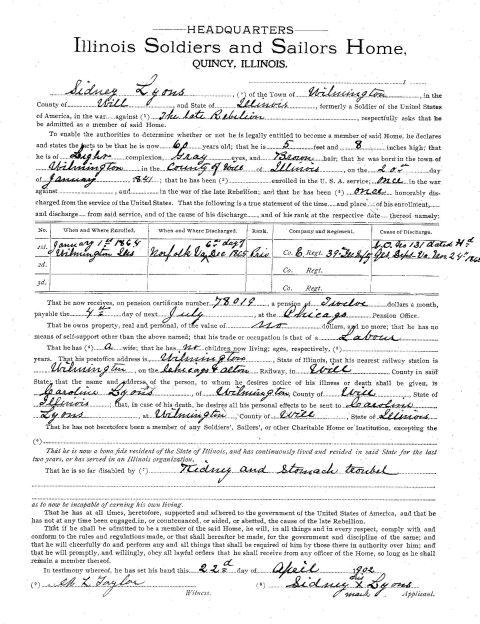 HEADQUARTERS
Illinois Soldiers and Sailors Home,
QUINCY, ILLINOIS.
Sidney Lyons, (¹) of the Town of Wilmington, in the
County of Will and State of Illinois, formerly a Soldier of the United States
of America, in the war against (²) The late Rebelion respectfully asks that he
be admitted as a member of said Home.
To enable the authorities to determine whether or not he is legally entitled to become a member of said Home, he declares
and states the facts to be that he is now 60 years old; that he is 5 feet and 8 inches high; that
he is of Light complexion, Gray eyes, and Brown hair; that he was born in the town of
Wilmington in the County of Will of Illinois on the 20th day
January 1841; that he has been (³) enlisted in the U. S. A. service; once in the war
against and in the war of the late Rebellion; and that he has been (³) once honorably dis-
charged from the service of the United States. That the following is a true statement of the time and place of his enrollment,
and discharge from said service, and of the cause of his discharge, and of his rank at the respective dates thereof, namely:
No. When and Where Enrolled. When and Where Discharged. Rank. Company and Regiment. Cause of Discharge.
1st. January 1st 1864 Wilmington Ills Norfolk Va 6th day Dec 1865 Priv Co. E. Regt. 39th Ills Infty G.O. No 131 dated Hd Qrs Dept Va Nov 24th
2d. Co. Regt.
3d. Co. Regt.
That he now receives, on pension certificate number 78019 a pension of Twelve dollars a month,
payable the 4th day of next July, at the Chicago Pension Office.
That he owns property, real and personal, of the value of no dollars, and no more; that he has no
means of self-support other than the above named; that his trade or occupation is that of a Labour
That he has (⁴) a wife; that he has no children now living; ages, respectively, (⁵)
years. That his postoffice address is Wilmington, State of Illinois, that his nearest railway station is
Wilmington, on the Chicago & Alton Railway, in Will County in said
State; that the name and address of the person, to whom he desires notice of his illness or death shall be given, is
Caroline Lyons, of Wilmington, County of Will, State of
Illinois; that, in case of his death, he desires all his personal effects to be sent to Caroline
Lyons, at Wilmington, County of Will, State of Illinois.
That he has not heretofore been a member of any Soldiers', Sailors', or other Charitable Home or Institution, excepting the
That he is now a bona fide resident of the State of Illinois, and has continuously lived and resided in said State for the last
two years, or has served in an Illinois organization.
That he is so far disabled by (⁷) Kidney and Stomach troubel
as to now be incapable of earning his own living.
That he has at all times, heretofore, supported and adhered to the government of the United States of America, and that he
has not at any time been engaged in, or countenanced, or aided, or abetted, the cause of the late Rebellion.
That if he shall be admitted to be a member of the said Home, he will, in all things and in every respect, comply with and
conform to the rules and regulations made, or that shall hereafter be made, for the government and discipline of the same; and
that he will cheerfully do and perform any and all things that shall be required of him by those there in authority over him; and
that he will promptly, and willingly, obey all lawful orders that he shall receive from any officer of the Home, so long as he shall
remain a member thereof.
In testimony whereof, he has set his hand this 22d day of April 1902
M L Taylor (⁸) Sidney his X mark Lyons
Witness. Applicant.